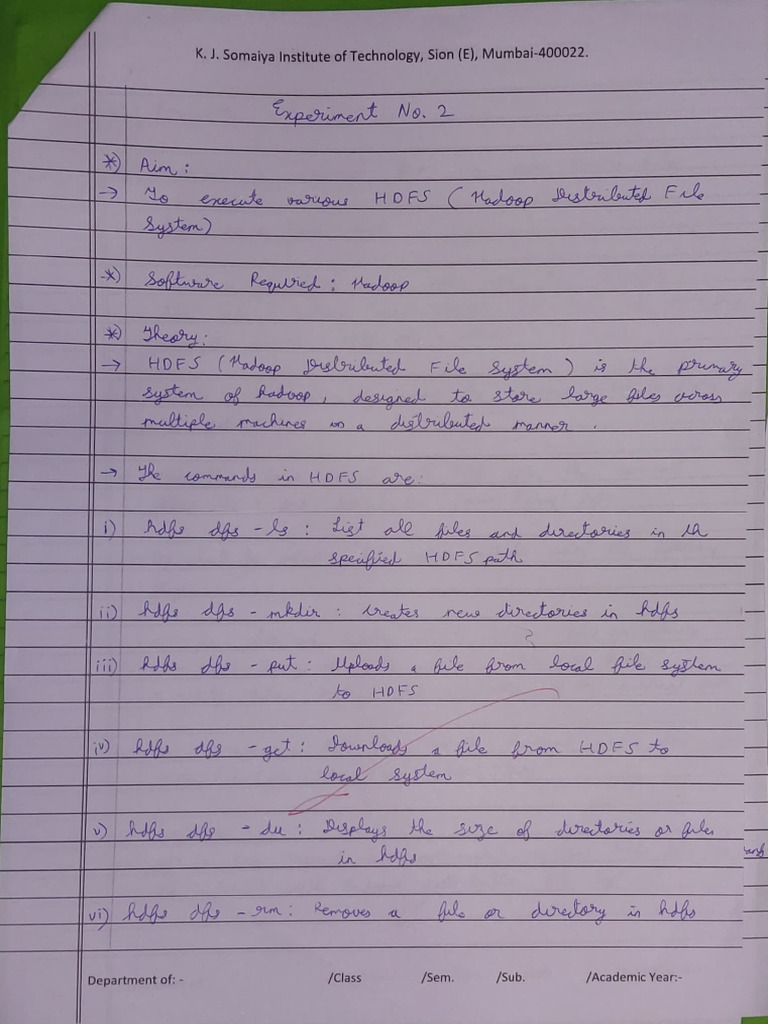 K. J. Somaiya Institute of Technology, Sion (E), Mumbai-400022.
Experiment No. 2
*) Aim :
→ To execute various HDFS ( Hadoop Distributed File
System)
*) Software Required : Hadoop
*) Theory :
→ HDFS (Hadoop Distributed File System ) is the primary
system of hadoop, designed to store large files across
multiple machines in a distributed manner .
→ The commands in HDFS are:
i) hdfs dfs - ls : List all files and directories in th
specified HDFS path
ii) hdfs dfs - mkdir : creates new directories in hdfs
iii) hdfs dfs - put : Uploads a file from local file system
to HDFS
iv) hdfs dfs - get : Downloads a file from HDFS to
local system
v) hdfs dfs - du : Displays the size of directories or files
in hdfs
vi) hdfs dfs - rm : Removes a file or directory in hdfs
Department of: - /Class /Sem. /Sub. /Academic Year:-